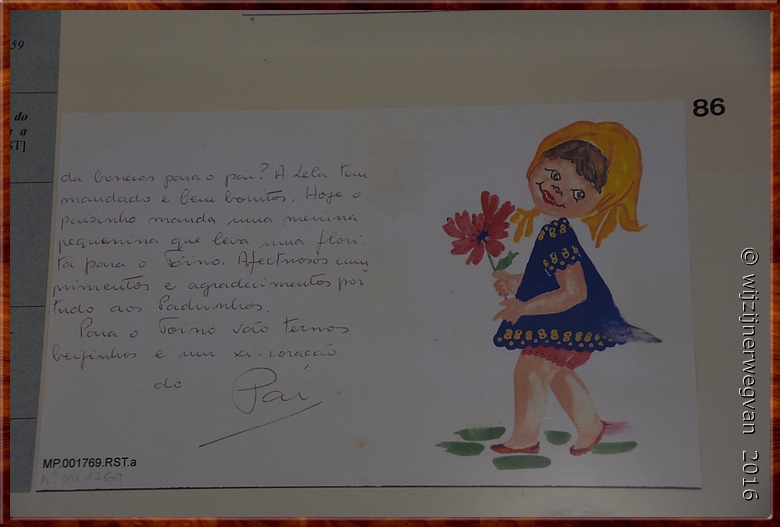 59
do
a
ST]
86
da bonecos para o pai? A Lela tem
mandado e bem bonitos. Hoje o
paizinho manda uma menina
pequenina que leva uma flori-
ta para o Toino. Afectuosos cum
primentos e agradecimentos por
tudo aos Padrinhos.
Para o Toino vão ternos
beijinhos e um xi-coração
do Pai
MP.001769.RST.a
Nº INV 1769
© wijzijnerwegvan 2016